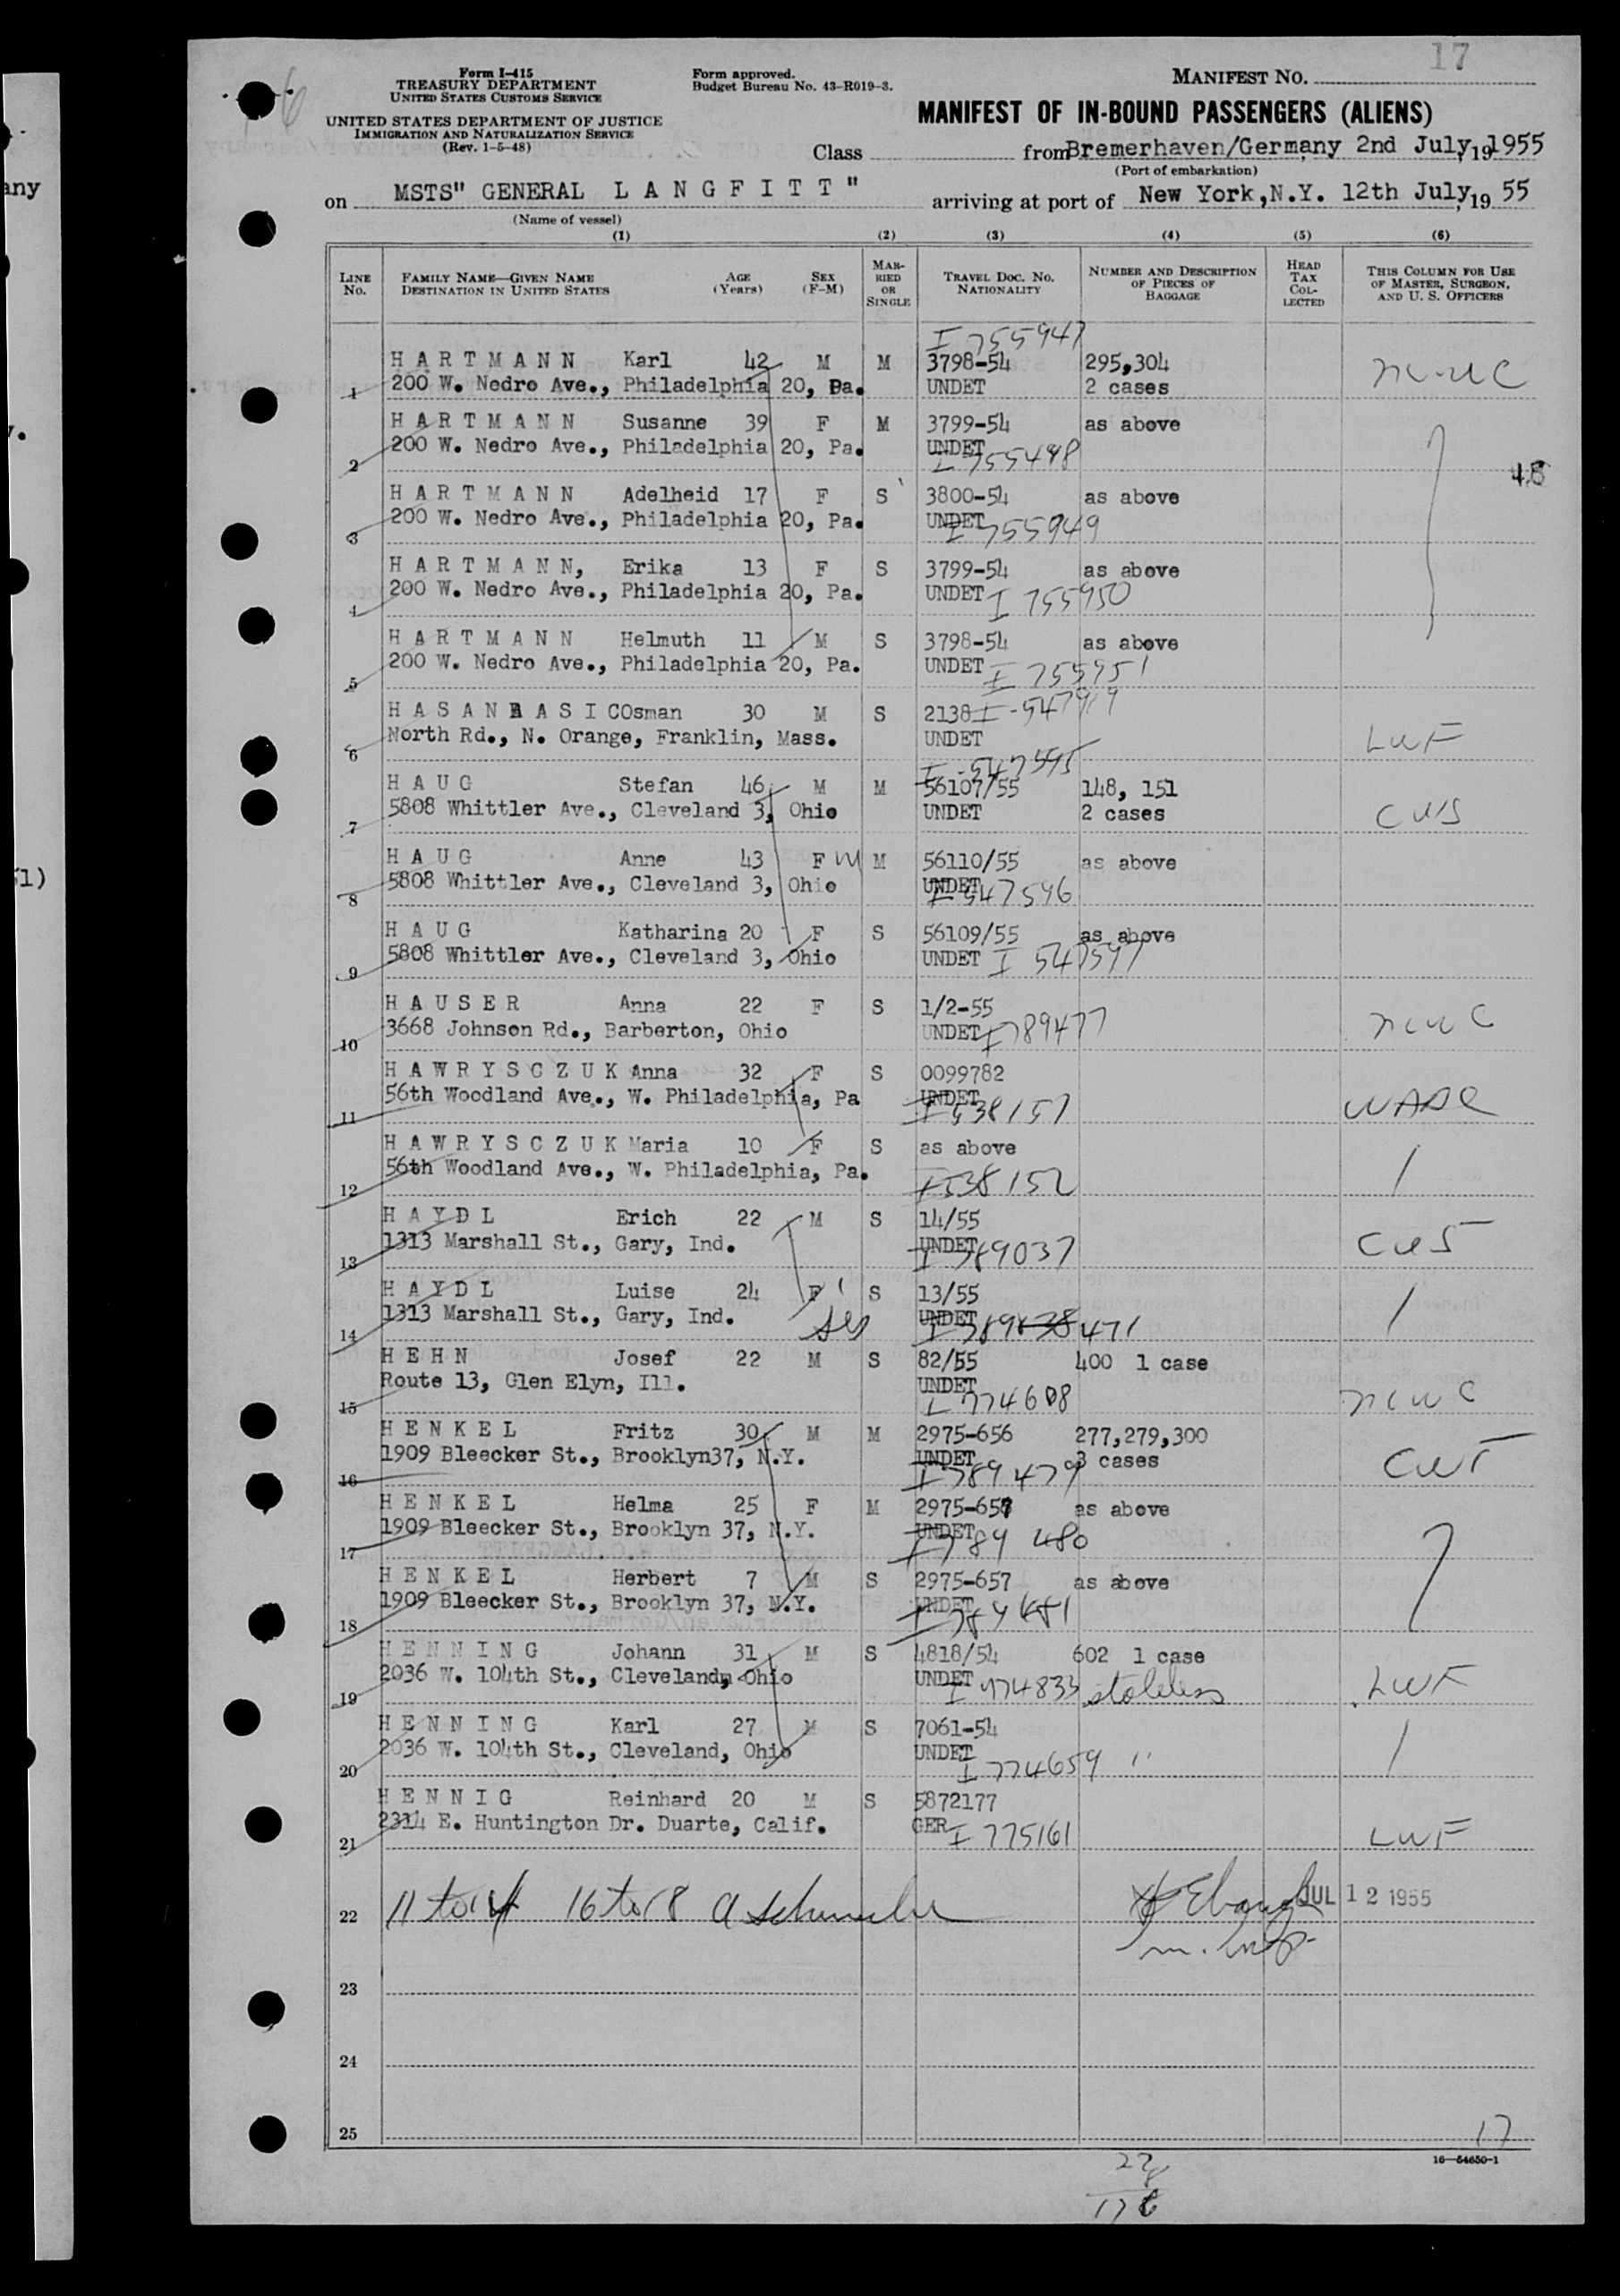 17
Form I-415
TREASURY DEPARTMENT
UNITED STATES CUSTOMS SERVICE
UNITED STATES DEPARTMENT OF JUSTICE
IMMIGRATION AND NATURALIZATION SERVICE
(Rev. 1-5-48)
Form approved.
Budget Bureau No. 43-R019-3.
MANIFEST No.
MANIFEST OF IN-BOUND PASSENGERS (ALIENS)
Class from Bremerhaven/Germany 2nd July, 19 1955
(Port of embarkation)
on MSTS" GENERAL L A N G F I T T " arriving at port of New York, N.Y. 12th July, 19 55
(Name of vessel)
(1) (2) (3) (4) (5) (6)
LINE No. FAMILY NAME—GIVEN NAME DESTINATION IN UNITED STATES AGE (Years) SEX (F-M) MARRIED OR SINGLE TRAVEL DOC. No. NATIONALITY NUMBER AND DESCRIPTION OF PIECES OF BAGGAGE HEAD TAX COLLECTED THIS COLUMN FOR USE OF MASTER, SURGEON, AND U. S. OFFICERS
I 755947
H A R T M A N N Karl 42 M M 3798-54 295,304
1 200 W. Nedro Ave., Philadelphia 20, Pa. UNDET 2 cases
H A R T M A N N Susanne 39 F M 3799-54 as above
2 200 W. Nedro Ave., Philadelphia 20, Pa. UNDET
48
H A R T M A N N Adelheid 17 F S 3800-54 as above
3 200 W. Nedro Ave., Philadelphia 20, Pa. UNDET I 755949
H A R T M A N N, Erika 13 F S 3799-54 as above
4 200 W. Nedro Ave., Philadelphia 20, Pa. UNDET I 755950
H A R T M A N N Helmuth 11 M S 3798-54 as above
5 200 W. Nedro Ave., Philadelphia 20, Pa. UNDET I 755951
H A S A N B A S I C Osman 30 M S 2138
6 North Rd., N. Orange, Franklin, Mass. UNDET LWF
H A U G Stefan 46 M M 56107/55 148, 151
7 5808 Whittler Ave., Cleveland 3, Ohio UNDET 2 cases CWS
H A U G Anne 43 F M 56110/55 as above
8 5808 Whittler Ave., Cleveland 3, Ohio UNDET I 547596
H A U G Katharina 20 F S 56109/55 as above
9 5808 Whittler Ave., Cleveland 3, Ohio UNDET I 547597
H A U S E R Anna 22 F S 1/2-55
10 3668 Johnson Rd., Barberton, Ohio UNDET I 789477 NCWC
H A W R Y S C Z U K Anna 32 F S 0099782
11 56th Woodland Ave., W. Philadelphia, Pa UNDET I 538151
H A W R Y S C Z U K Maria 10 F S as above
12 56th Woodland Ave., W. Philadelphia, Pa. I 538152
H A Y D L Erich 22 M S 14/55
13 1313 Marshall St., Gary, Ind. UNDET I 789037 CWS
H A Y D L Luise 24 F S 13/55
14 1313 Marshall St., Gary, Ind. UNDET
H E H N Josef 22 M S 82/55 400 1 case
15 Route 13, Glen Elyn, Ill. UNDET I 774608 NCWC
H E N K E L Fritz 30 M M 2975-656 277,279,300
16 1909 Bleecker St., Brooklyn37, N.Y. UNDET I 789479 3 cases
H E N K E L Helma 25 F M 2975-657 as above
17 1909 Bleecker St., Brooklyn 37, N.Y. UNDET I 789 480
H E N K E L Herbert 7 M S 2975-657 as above
18 1909 Bleecker St., Brooklyn 37, N.Y. UNDET I 789481
H E N N I N G Johann 31 M S 4818/54 602 1 case
19 2036 W. 104th St., Cleveland, Ohio UNDET I 774833 LWF
H E N N I N G Karl 27 M S 7061-54
20 2036 W. 104th St., Cleveland, Ohio UNDET I 774659 "
H E N N I G Reinhard 20 M S 5872177
21 2314 E. Huntington Dr. Duarte, Calif. GER I 775161 LWF
22 11 to 14 16 to 18 JUL 12 1955
23
24
25
17
16—54650-1